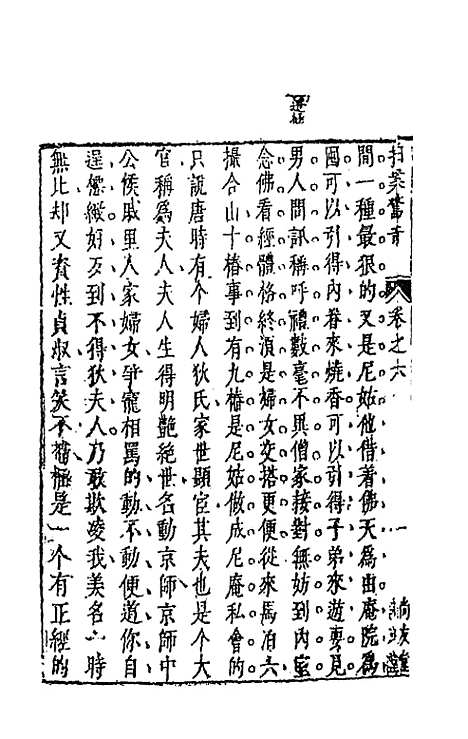 拍案驚奇
卷之六
一
尚友堂
間一種最狠的又是尼姑他借着佛天爲由庵院爲
囤可以引得內眷來燒香可以引得子弟來遊耍見
男人問訊稱呼禮數毫不異僧家接對無妨到內室
念佛看經體格終須是婦女交搭更便從來馬泊六
撮合山十樁事到有九樁是尼姑做成尼庵私會的
只說唐時有个婦人狄氏家世顯宦其夫也是个大
官稱爲夫人夫人生得明艷絕世名動京師京師中
公侯戚里人家婦女爭寵相罵的動不動便道你自
逞標緻好歹到不得狄夫人乃敢欺凌我美名一時
無比却又資性貞淑言笑不苟極是一个有正經的